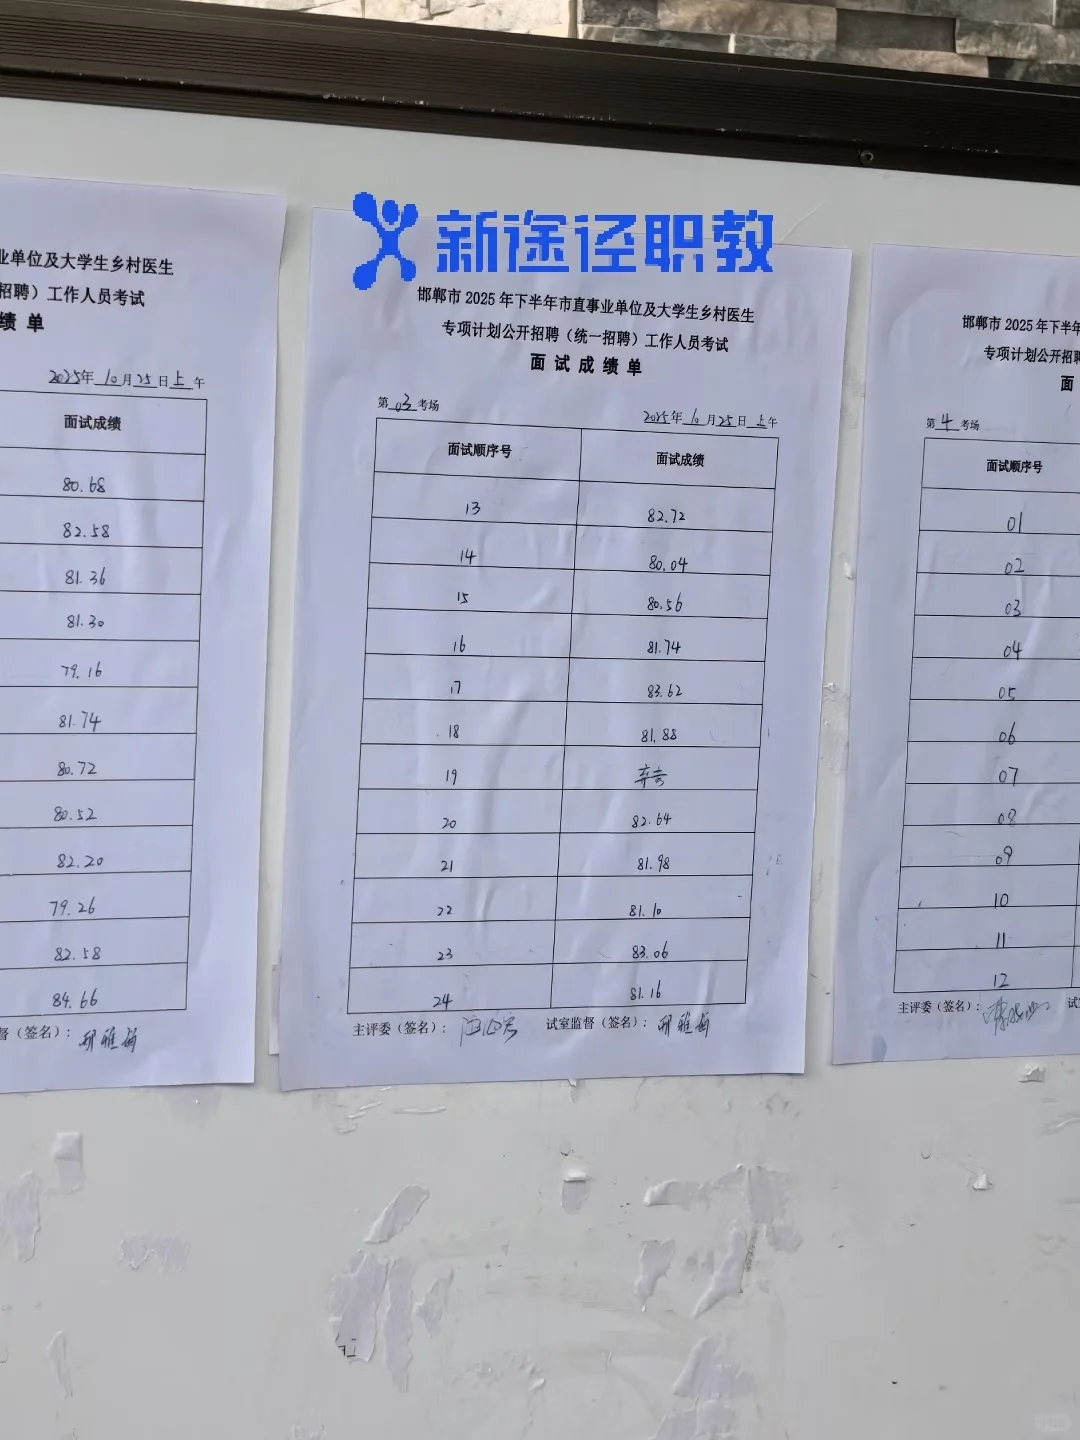 新途径职教
业单位及大学生乡村医生
招聘）工作人员考试
绩 单
2025年 10 月 25 日 上 午
面试成绩
80.68
82.58
81.36
81.30
79.16
81.74
80.72
80.52
82.20
79.26
82.58
84.66
督（签名）：
邯郸市 2025 年下半年市直事业单位及大学生乡村医生
专项计划公开招聘（统一招聘）工作人员考试
面 试 成 绩 单
第 03 考场
2025年 10 月 25 日 上 午
面试顺序号 面试成绩
13 82.72
14 80.04
15 80.56
16 81.74
17 83.62
18 81.88
19 弃考
20 82.64
21 81.98
22 81.10
23 83.06
24 81.16
主评委（签名）： 试室监督（签名）：
邯郸市 2025 年下半年
专项计划公开招聘
面
第 4 考场
面试顺序号
01
02
03
04
05
06
07
08
09
10
11
12
主评委（签名）： 试